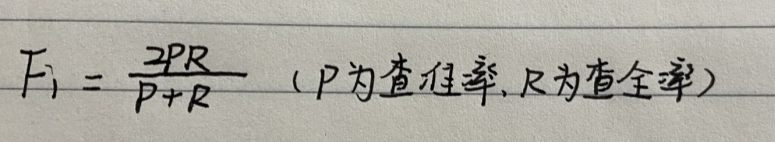 F₁ = 2PR / P+R （P为查准率, R为查全率）